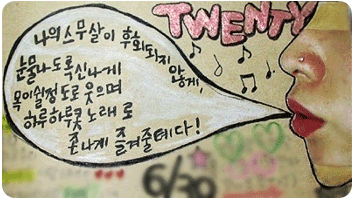 TWENTY
나의스무살이 후회되지
않게,
눈물나도록신나게
목이쉴정도로 웃으며
하루하루콧노래로
존나게 즐겨줄테다!
6/30